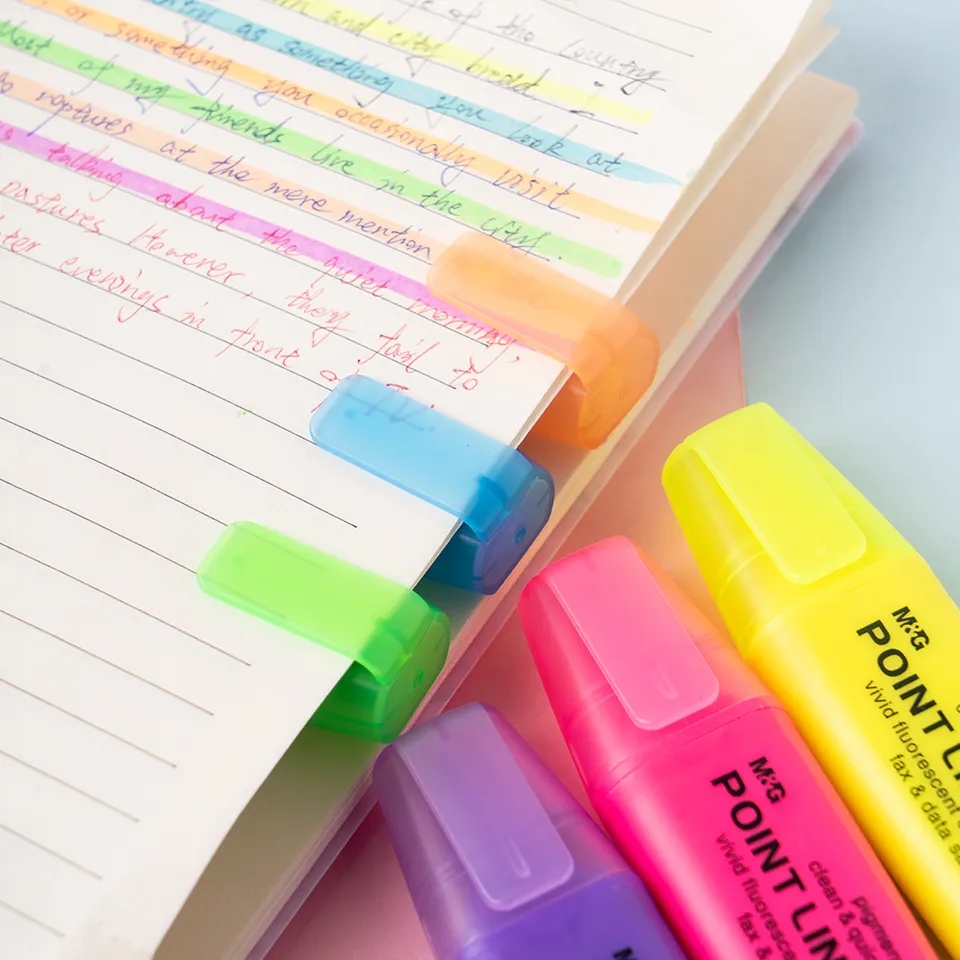 of the country
and city bread
as something you look at
or something you occasionally visit
Most of my friends live in the city.
raptures at the mere mention
talking about the quiet morning,
pastures However, they fail to
evenings in front
M&G
POINT LI
vivid fluorescent
fax & data
M&G
POINT LIN
vivid fluoresce
fax &
clean & quic
pigmen
M